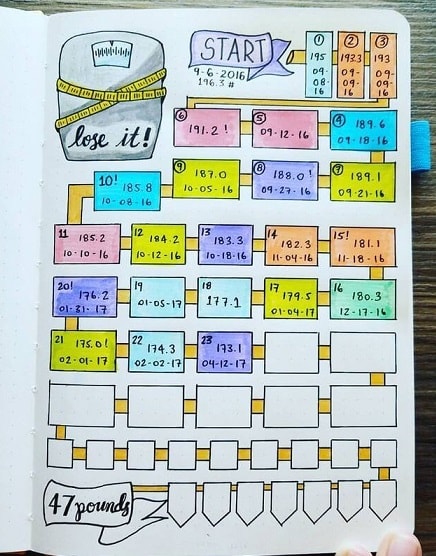 lose it!
START
9-6-2016
196.3 #
1
195
09-
08-
16
2
193.3
09-
09-
16
3
193
09-
16
6
191.2!
5
09-12-16
4
189.6
09-18-16
10!
185.8
10-08-16
9
187.0
10-05-16
8
188.0!
09-27-16
7
189.1
09-21-16
11
185.2
10-10-16
12
184.2
10-12-16
13
183.3
10-18-16
14
182.3
11-04-16
15!
181.1
11-18-16
20!
176.2
01-31-17
19
01-05-17
18
177.1
17
179.5
01-04-17
16
180.3
12-17-16
21
175.0!
02-01-17
22
174.3
02-02-17
23
173.1
04-12-17
47 pounds